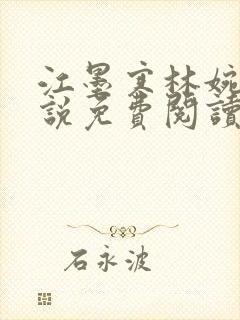 江墨寒林婉
說免費閱讀
石永波